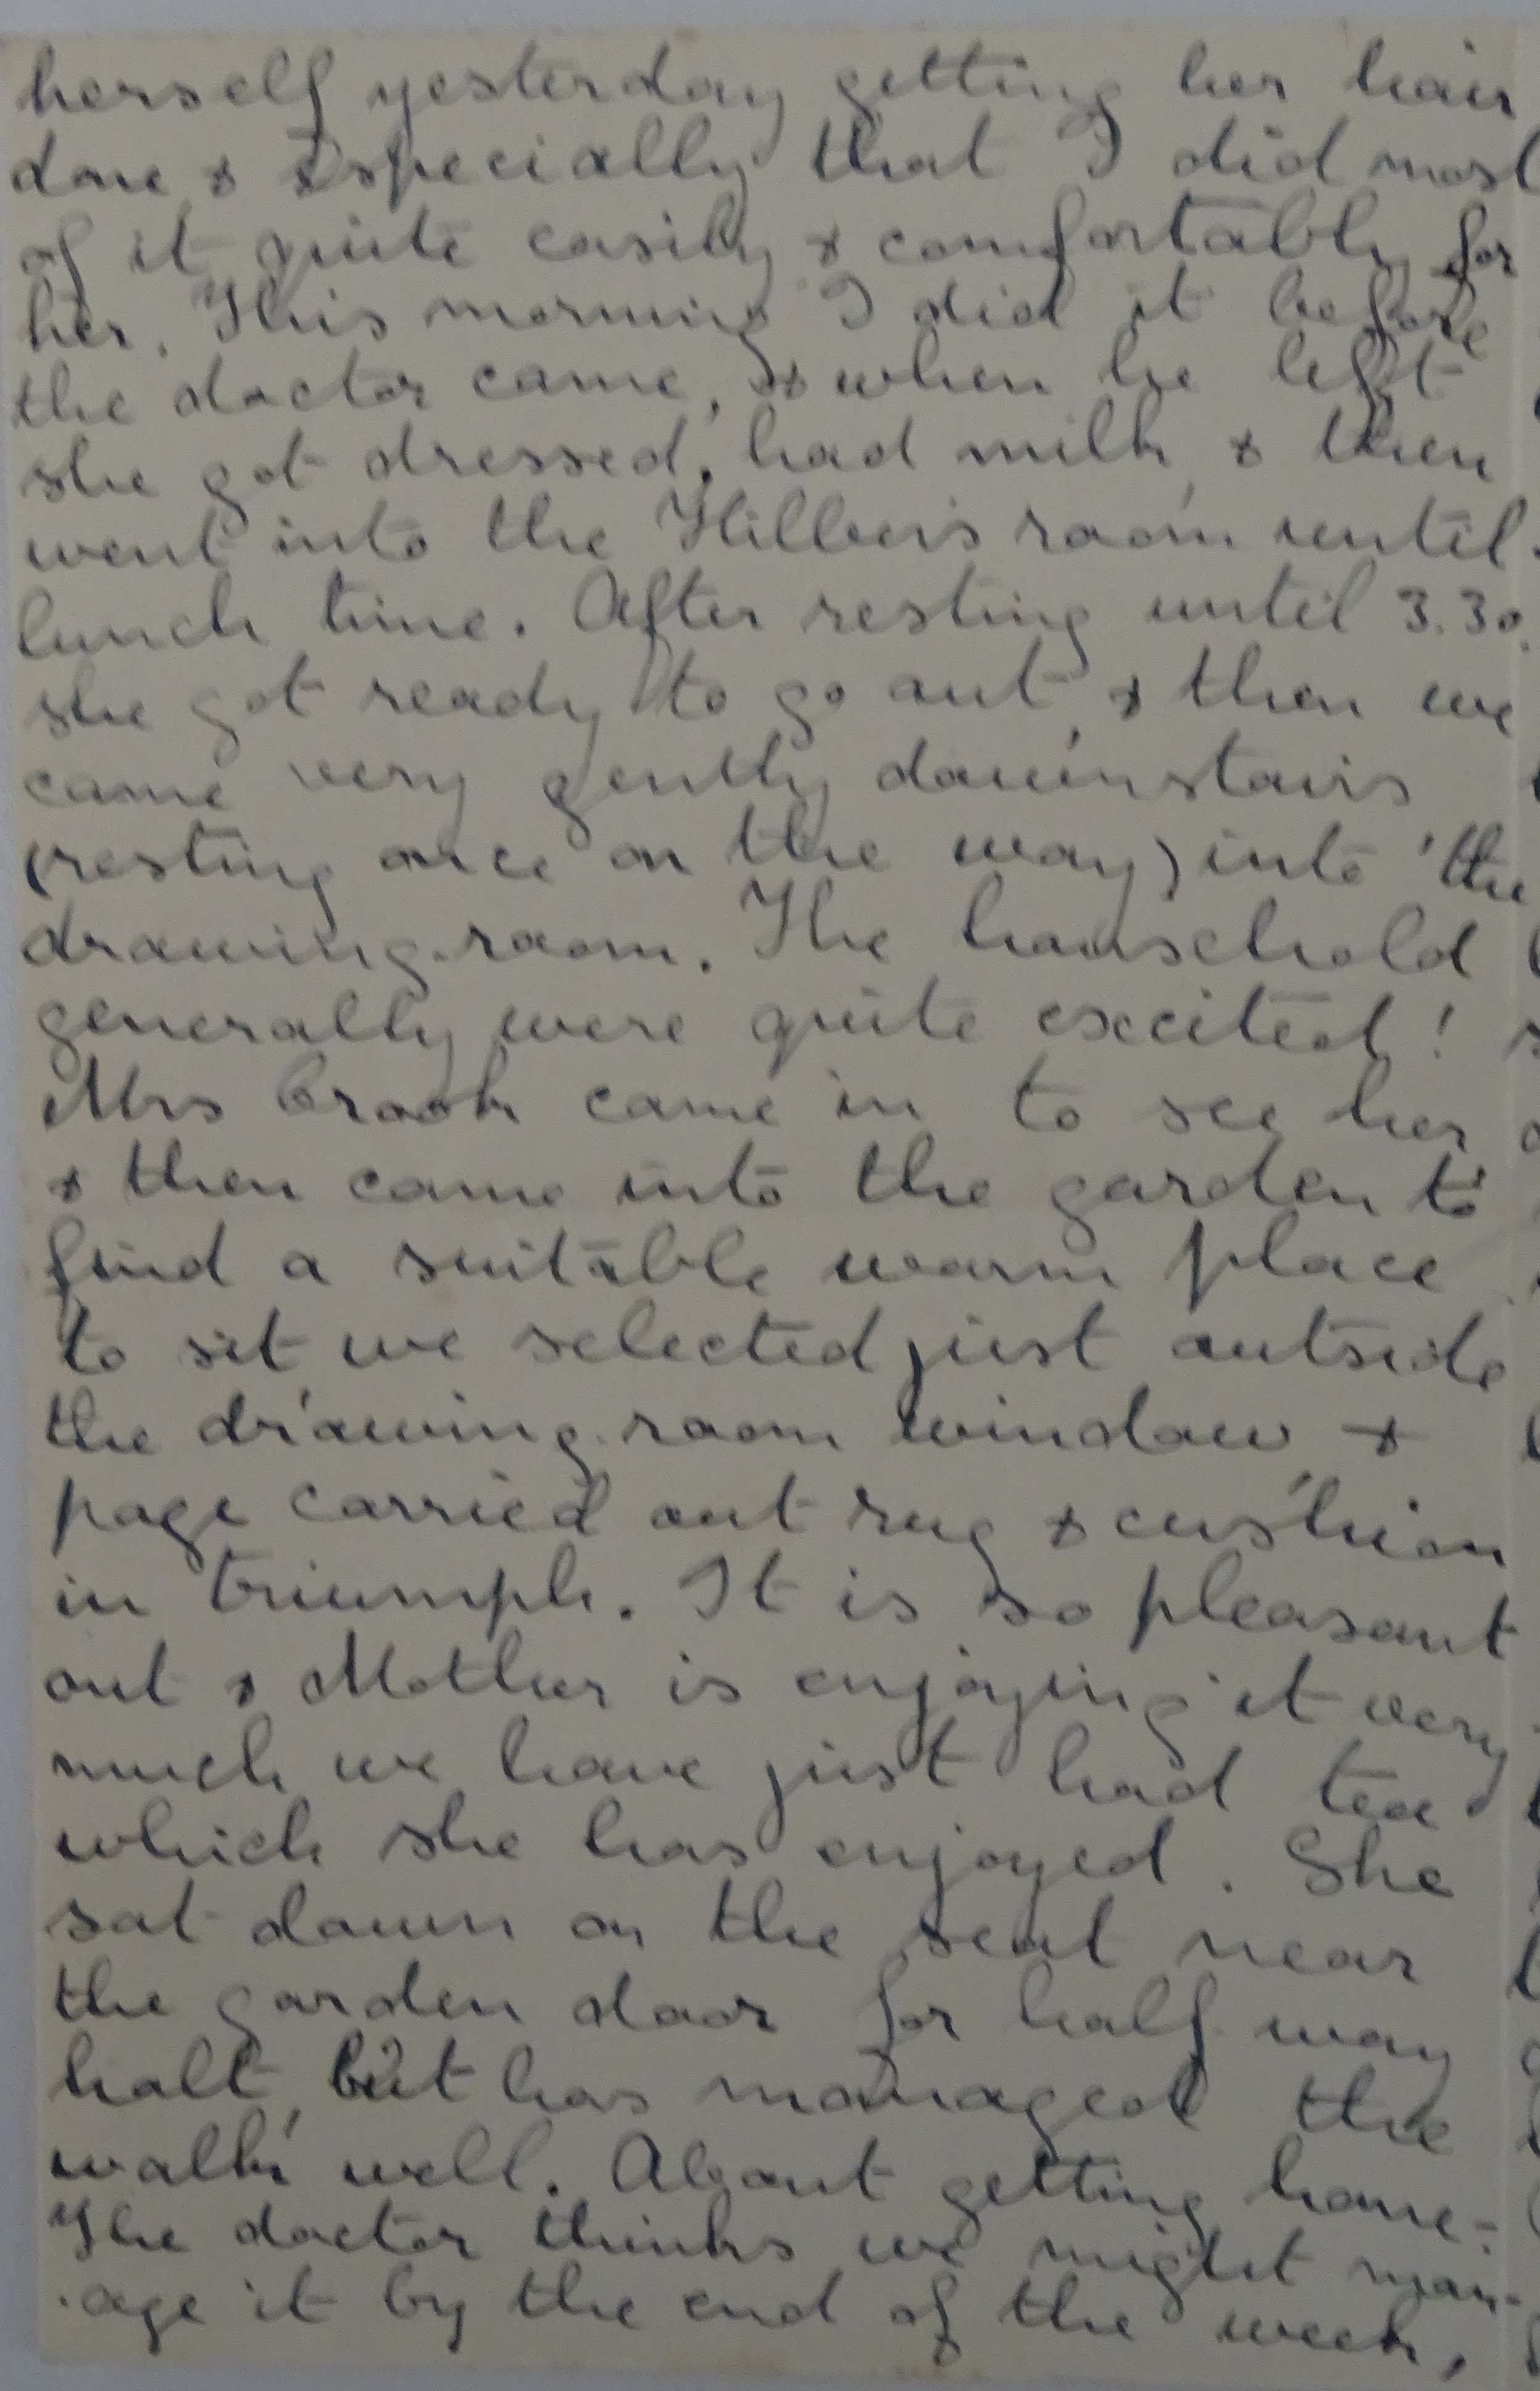 herself yesterday getting her hair
done & especially that I did most
of it quite easily & comfortably for
her. This morning I did it before
the doctor came, & when he left
she got dressed, had milk, & then
went into the room until
lunch time. After resting until 3.30.
she got ready to go out, & then we
came very gently downstairs
(resting once on the way) into the
drawing-room. The household
generally were quite excited!
Mrs came in to see her
& then came into the garden to
find a suitable warm place
to sit we selected just outside
the drawing-room window, &
page carried out rug & cushion
in triumph. It is so pleasant
out & Mother is enjoying it very
much we have just had tea
which she has enjoyed. She
sat down on the seat near
the garden door for half way
halt, but has managed the
walk well. About getting home:-
The doctor thinks we might man-
-age it by the end of the week,